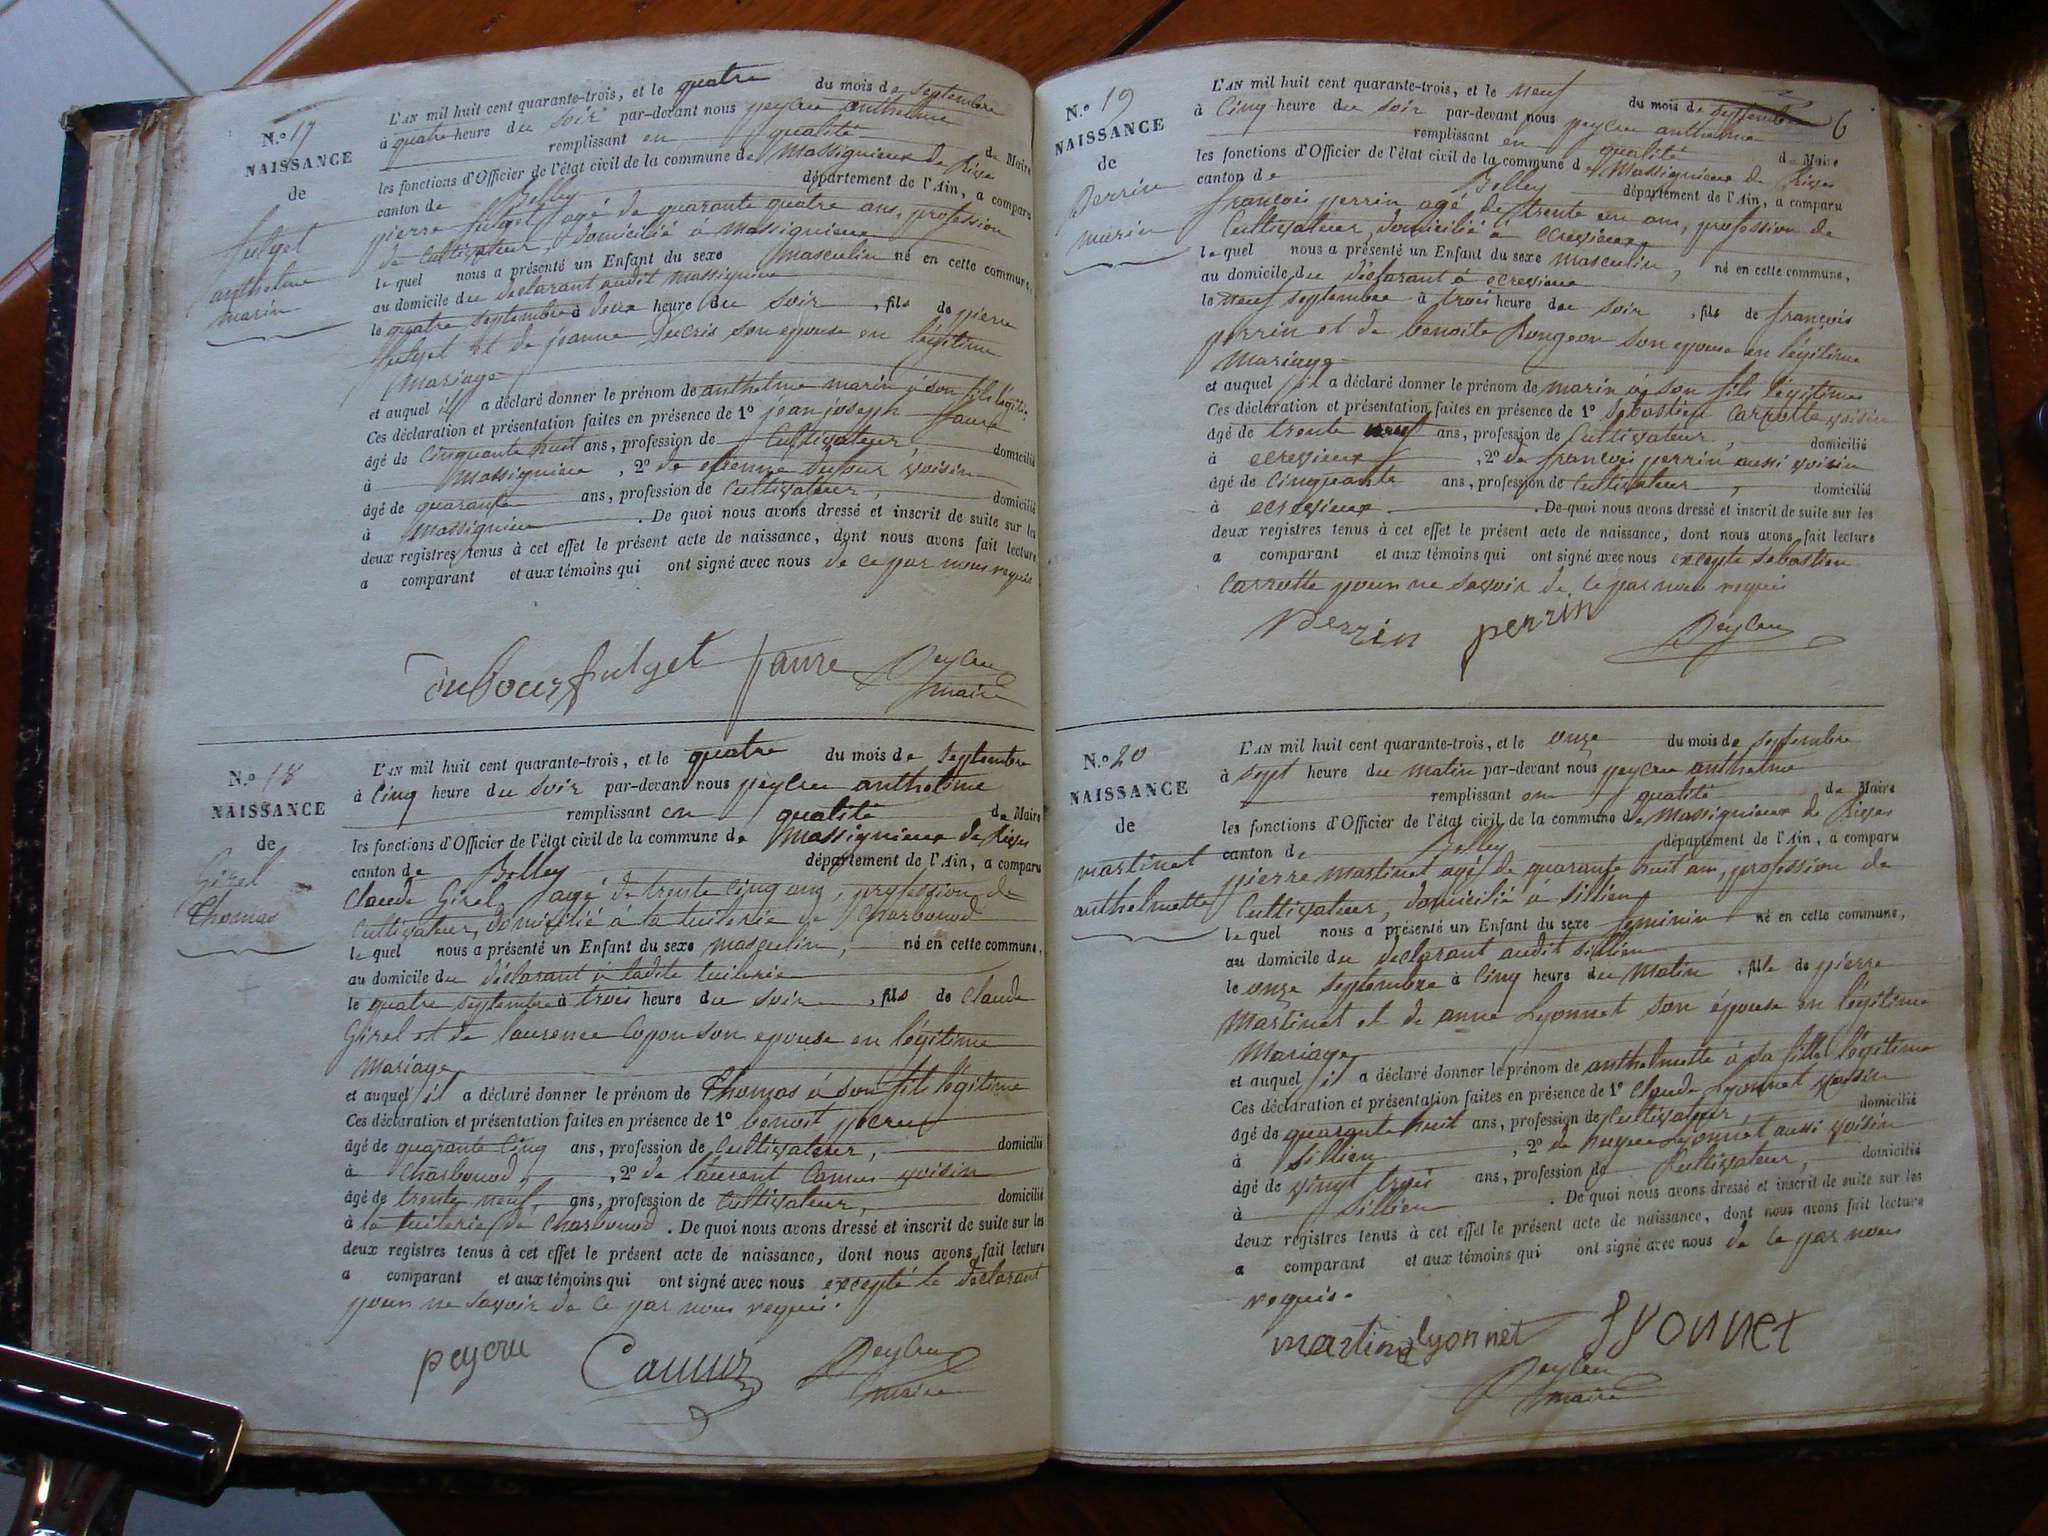 N.º 17
NAISSANCE
de
fulget
anthelme
marin
L'AN mil huit cent quarante-trois, et le quatre du mois de septembre
à quatre heure du soir par-devant nous peycru anthelme
remplissant en qualité de Maire
les fonctions d'Officier de l'état civil de la commune de Massignieux de Rives
canton de Belley département de l'Ain, a comparu
pierre fulget agé de quarante quatre ans, profession
de Cultivateur, domicilié à Massignieux
lequel nous a présenté un Enfant du sexe masculin né en cette commune,
au domicile du déclarant audit massignieu
le quatre septembre à deux heure du soir, fils de pierre
fulget et de jeanne son epouse en légitime
Mariage
et auquel il a déclaré donner le prénom de anthelme marin à son fils légiti.
Ces déclaration et présentation faites en présence de 1º jean joseph faure
âgé de Cinquante huit ans, profession de Cultivateur, domicilié
à Massignieu, 2º de etienne dufour voisin
âgé de quarante ans, profession de Cultivateur, domicilié
à Massignieu. De quoi nous avons dressé et inscrit de suite sur les
deux registres tenus à cet effet le présent acte de naissance, dont nous avons fait lecture
a comparant et aux témoins qui ont signé avec nous de ce par nous requis
dufour fulget faure Peycru
maire
N.º 18
NAISSANCE
de
Girel
Thomas
L'AN mil huit cent quarante-trois, et le quatre du mois de septembre
à Cinq heure du soir par-devant nous peycru anthelme
remplissant en qualité de Maire
les fonctions d'Officier de l'état civil de la commune de Massignieux de Rives
canton de Belley département de l'Ain, a comparu
Claude Girel agé de trente Cinq ans, profession de
Cultivateur, domicilié a la tuilerie de Charbonod
lequel nous a présenté un Enfant du sexe masculin, né en cette commune,
au domicile du déclarant à ladite tuilerie
le quatre septembre à trois heure du soir, fils de Claude
Girel et de laurence son epouse en légitime
Mariage
et auquel il a déclaré donner le prénom de Thomas à son fils légitime
Ces déclaration et présentation faites en présence de 1º benoit pecru
âgé de quarante Cinq ans, profession de Cultivateur, domicilié
à Charbonod, 2º de laurent Camus voisin
âgé de trente neuf ans, profession de Cultivateur, domicilié
à la tuilerie de Charbonod. De quoi nous avons dressé et inscrit de suite sur les
deux registres tenus à cet effet le présent acte de naissance, dont nous avons fait lecture
a comparant et aux témoins qui ont signé avec nous excepté le déclarant
pour ne savoir de ce par nous requis.
peycru Camuz Peycru
maire
6
N.º 19
NAISSANCE
de
Perrin
marin
L'AN mil huit cent quarante-trois, et le neuf du mois de septembre
à Cinq heure du soir par-devant nous peycru anthelme
remplissant en qualité de Maire
les fonctions d'Officier de l'état civil de la commune de Massignieux de Rives
canton de Belley département de l'Ain, a comparu
françois perrin agé de trente un ans, profession de
Cultivateur, domicilié à ecrevieux
lequel nous a présenté un Enfant du sexe masculin, né en cette commune,
au domicile du déclarant à ecrevieux
le neuf septembre à trois heure du soir, fils de françois
perrin et de benoite Rongeon son epouse en légitime
Mariage
et auquel il a déclaré donner le prénom de marin à son fils légitime
Ces déclaration et présentation faites en présence de 1º sébastien Carrotte voisin
âgé de trente neuf ans, profession de Cultivateur, domicilié
à ecrevieux, 2º de françois perrin aussi voisin
âgé de Cinquante ans, profession de Cultivateur, domicilié
à ecrevieux. De quoi nous avons dressé et inscrit de suite sur les
deux registres tenus à cet effet le présent acte de naissance, dont nous avons fait lecture
a comparant et aux témoins qui ont signé avec nous excepté sebastien
Carrotte pour ne savoir de ce par nous requis
Perrin perrin Peycru
N.º 20
NAISSANCE
de
martinet
anthelmette
L'AN mil huit cent quarante-trois, et le onze du mois de septembre
à sept heure du matin par-devant nous peycru anthelme
remplissant en qualité de Maire
les fonctions d'Officier de l'état civil de la commune de Massignieux de Rives
canton de Belley département de l'Ain, a comparu
pierre martinet agé de quarante huit ans, profession de
Cultivateur, domicilié à sillien
lequel nous a présenté un Enfant du sexe feminin né en cette commune,
au domicile du déclarant audit sillien
le onze septembre à Cinq heure du Matin, fille de pierre
Martinet et de anne Lyonnet son épouse en légitime
Mariage
et auquel il a déclaré donner le prénom de anthelmette à sa fille légitime
Ces déclaration et présentation faites en présence de 1º Claude Lyonnet voisin
âgé de quarante huit ans, profession de Cultivateur, domicilié
à sillien, 2º de Lyonnet aussi voisin
âgé de vingt trois ans, profession de Cultivateur, domicilié
à sillien. De quoi nous avons dressé et inscrit de suite sur les
deux registres tenus à cet effet le présent acte de naissance, dont nous avons fait lecture
a comparant et aux témoins qui ont signé avec nous de ce par nous
requis.
martinet lyonnet lyonnet
Peycru
maire